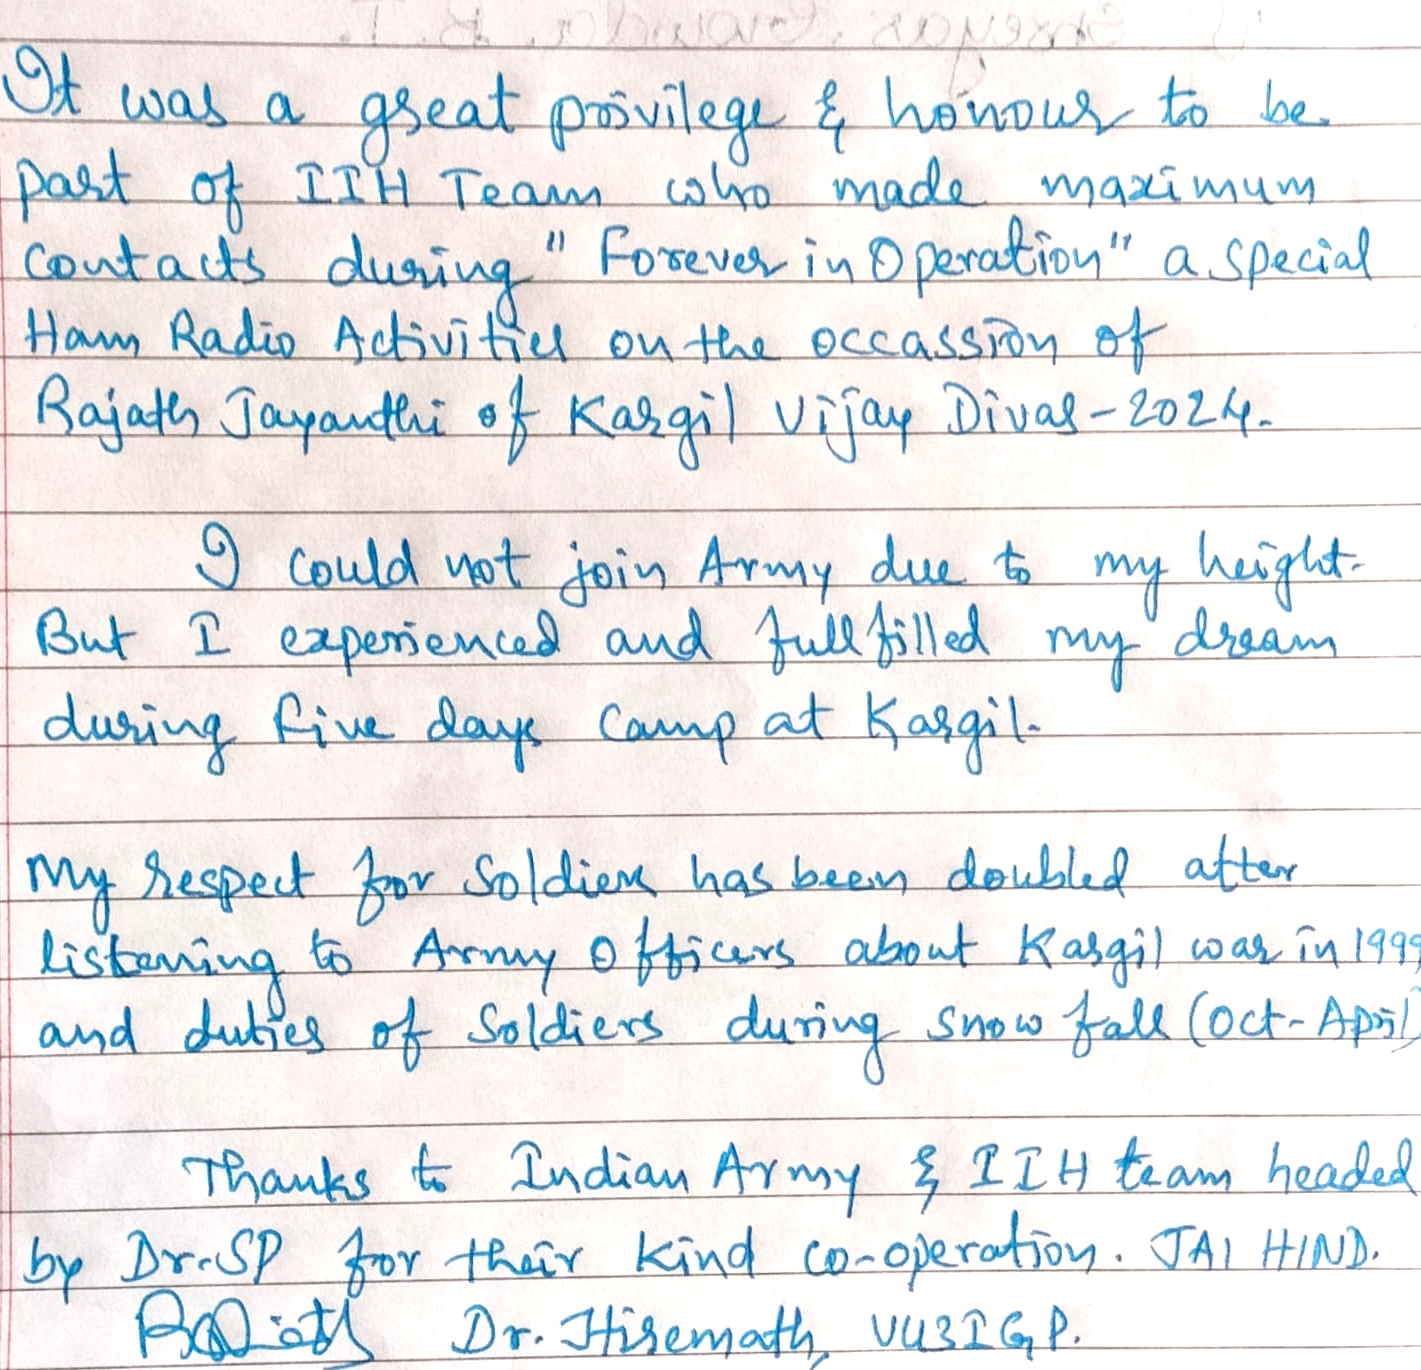 It was a great privilege & honour to be
part of IIH Team who made maximum
contacts during "Forever in Operation" a special
Ham Radio Activities on the occassion of
Rajath Jayanthi of Kargil Vijay Divas-2024.
I could not join Army due to my height.
But I experienced and fullfilled my dream
during five days camp at Kargil.
My respect for Soldiers has been doubled after
listening to Army Officers about Kargil war in 1999
and duties of Soldiers during snow fall (Oct-April)
Thanks to Indian Army & IIH team headed
by Dr.SP for their kind co-operation. JAI HIND.
Dr. Hiremath, VU3IGP.